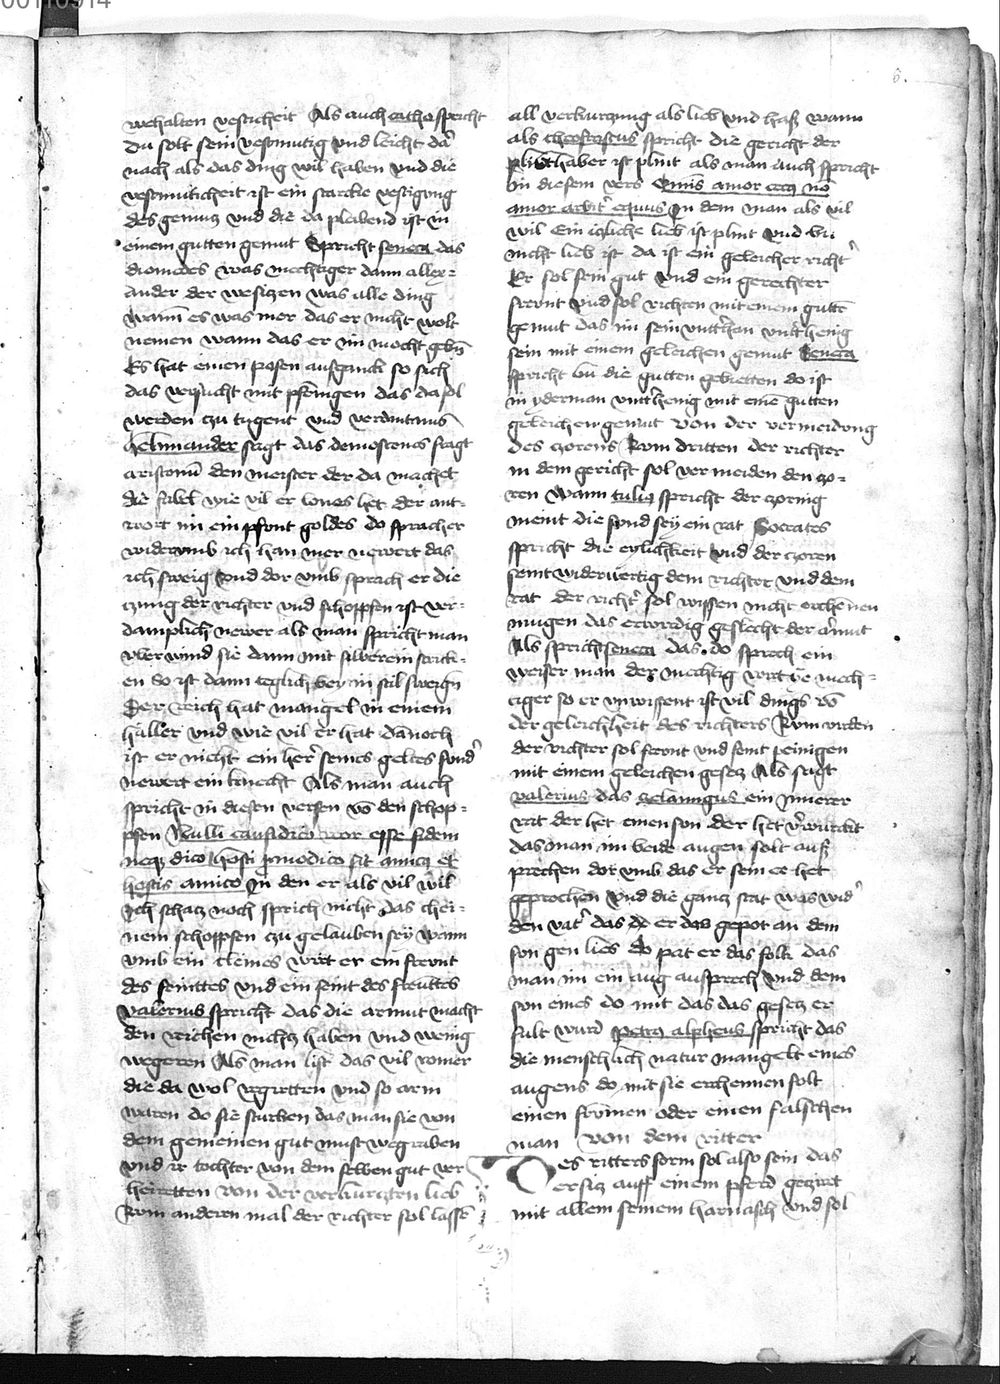 6.
wehalten vesticheit Als auch catho spricht
Du solt sein vestmutig vnd leicht dar
nach als das ding wil haben vnd die
vestmuticheit ist ein starcke vestigung
des gemutz vnd die da pleibend ist in
einem gutten gemut Spricht seneca das
diomedes was mechtiger dann allex=
ander der wesitzen was alle ding
wann es was mer das er nicht wolt
nemen wann das er im mocht geben
Es hat einen posen aufganck so sich
das versucht mit pfenigen das da sol
werden czu tugent vnd verdintnus
helimander sagt das demostenes fragt
aristonem den meister der da machet
die fabel wie vil er lones het der ant=
wort im ein pfont goldes do sprach er
widervmb ich han mer newert das
ich sweig Vnd dor vmb sprach er die
czung der richter vnd schoppfen ist ver=
damplich newer als man spricht man
vberwind sie dann mit silberein strick=
en so ist dann teglich bey in stil sweign
Der reich hat mangel in einem
haller vnd wie vil er hat dannoch
ist er nicht ein herr seines geltes sunder
newert ein knecht Als man auch
spricht in diesen versen von den schop=
pfen Nulli causidico reor esse fidem
neque dico hosti pro modico fit amicus et
hostis amico In den er als vil wil
Ich schatz noch sprich nicht das chei=
nem schoppfen czu gelauben sey wann
vmb ein cleines wirt er ein freunt
des feinttes vnd ein feint des freuntes
valerius spricht das die armut macht
den reichen nichtz haben vnd wenig
wegeren Als man list das vil romer
die da wol regirtten vnd so arm
waren do sie sturben das man sie von
dem gemeinen gut must wegraben
vnd ir tochter von dem selben gut ver
heiretten von der verkurtzten lieb
Zum anderen mal der richter sol lassen
all verkurtzung als lieb vnd haß wann
als theofrostus spricht die gericht der
plint haber ist plint als man auch spricht
in diesem vers Omnis amor cecus non
amor arbiter equus In dem man als vil
wil Ein itzliche lieb ist plint vnd bu
nicht lieb ist da ist ein geleicher richter
Er sol sein gut vnd ein gerechter
freunt vnd sol richten mit einem gutten
gemut das im sein vntthan vntthenig
sein mit einem geleichen gemut Seneca
spricht bu die gutten gebietten do ist
in yderman vntthenig mit eine gutten
geleichen gemut von der vermeidung
des czorens Zum dritten der richter
in dem gericht sol vermeiden den czo=
ren Wann tulius spricht der czornig
meint die sund sey ein rat Socrates
spricht die eylichkeit vnd der czoren
seint widerwertig dem richter vnd dem
rat der richter sol wissen nicht erchennen
mugen das erwirdig geslecht der armut
Als spricht seneca das do sprech ein
weiser man der mechtig wirt ye mech=
tiger so er vnwissent ist vil dings von
der geleichheit des richters Zum virden
der richter sol freunt vnd feint peinigen
mit einem geleichen gesetz Als sagt
valerius das zelanngus ein innerer
rat der het einen son der het verwurckt
das man im beide augen solt auß
prechen dor vmb das er sein ee het
geprochen Vnd die gantz stat was wider
den vater das er das gepot an dem
son gen lies do pat er das folk das
man im ein aug ausprech vnd dem
son eines do mit das das gesetz er
fult wurd petrus alpheus spricht das
die menschlich natur mangelt eines
augens do mit sie erchennen solt
einen frömen oder einen falschen
man von dem ritter
Des ritters form sol also sein das
er sitz auff einem pferd getzirt
mit allem seinem harnasch vnd sol